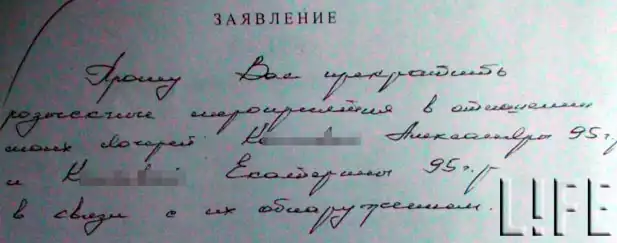 ЗАЯВЛЕНИЕ
Прошу Вас прекратить
розыскные мероприятия в отношении
моих дочерей К Александры 95 г/р
и К Екатерины 95 г.р
в связи с их обнаружением.
L!FE